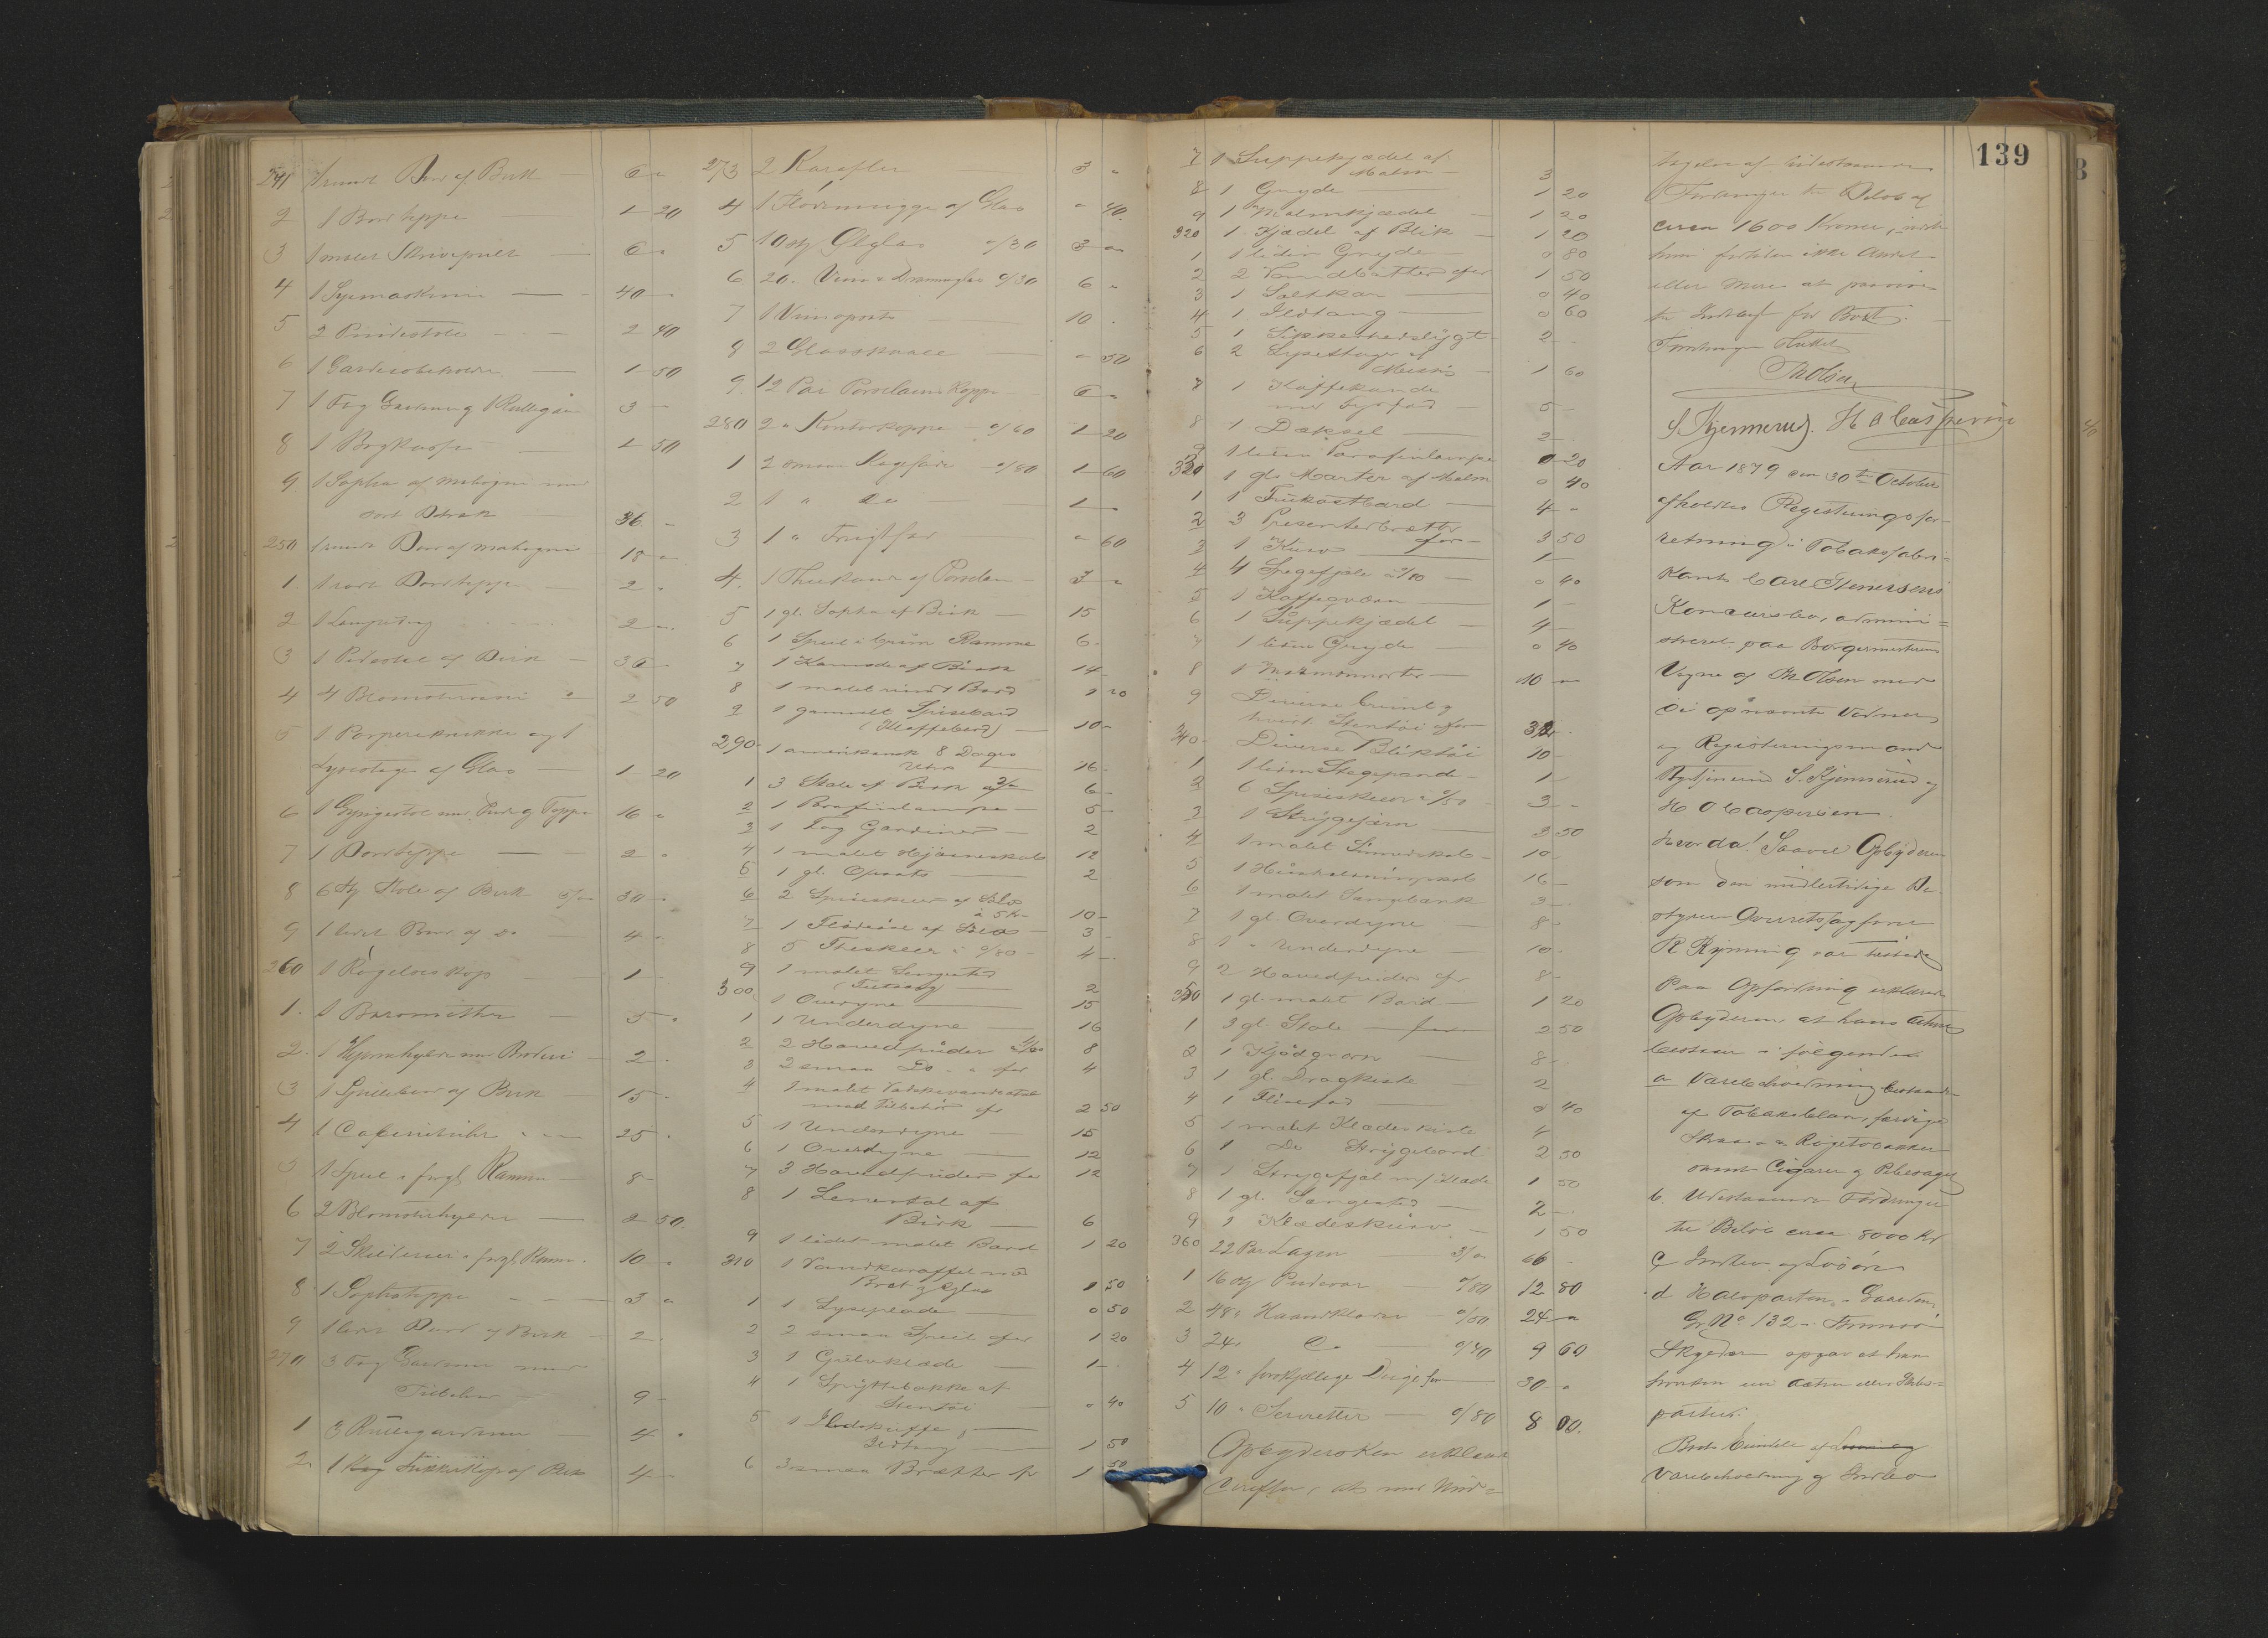 241 1 rundt Bord af Birk 6 "
2 1 Bordteppe 1 20
3 1 malet Skrivepult 6 "
4 1 Symaskine 40 "
5 2 Pindestole 2 40
6 1 Garderobeholder 1 50
7 1 Fag Gardiner og 1 Rullegardin 3 -
8 1 Bogkasse 1 50
9 1 Sopha af Mahogni med
sort Betræk 36 -
250 1 rundt Bord af Mahogni 18 "
1 1 sort Bordteppe 2 "
2 1 2 "
3 1 Pidestal af Birk 36 "
4 4 Blomster " 2 50
5 1 og 1
Lysestage af Glas 1 20
6 1 Gyngestol med og Teppe 16 "
7 1 Bordteppe 2 "
8 6 St Stole af Birk 5/00 30 "
9 1 lidet Bord af Do 4 "
260 1 1 -
1 1 Baromether 5 "
2 1 Hjørnhylde med Broderi 2 "
3 1 Spillebord af Birk 15 "
4 1 25 "
5 1 Speil i forgl. Ramme 8 -
6 2 Blomsterhylder 2 50
7 2 Skilderier i forgl. Ramme 10 "
8 1 Sophateppe 3 "
9 1 lidet Bord af Birk 2 "
270 3 Fag Gardiner med
Tilbehør 9 -
1 3 Rullegardiner 4 "
2 1 af Birk 4 -
273 2 Karafler 3 "
4 1 Flødemugge af Glas " 40
5 10 St Ølglas o/30 3 "
6 20. Viin & Dramglas o/30 6 "
7 1 10 .
8 2 Glasskaale " 50
9 12 Par Porselains Kopper 6 "
280 2 " Kontorkopper o/60 1 20
1 2 smaa Kagefade o/80 1 60
2 1 " Do 1 "
3 1 " Frugtfad " 60
4 1 Thekande af Porselen 3 "
5 1 gl. Sopha af Birk 15
6 1 Speil i brun Ramme 6 -
7 1 Komode af Birk 14 -
8 1 malet rundt Bord 1 20
9 1 gammelt Spisebord
(Klaffebord) 10 -
290 1 amerikansk 8 Dages
Uhr 16 -
1 3 Stole af Birk 2/" 6 -
2 1 Parafinlampe 5 -
3 1 Fag Gardiner 2
4 1 malet Hjørneskab 12
5 1 gl. Opsats 2
6 2 Spiseskeer af Sølv
à 5 Kr 10 -
7 1 Flødeøse af Sølv 3 -
8 5 Theskeer à o/80 4 -
9 1 malet Sengested
2
300 1 Overdyne 15
1 1 Underdyne 16
2 2 Hovedpuder 8
3 2 smaa Do for 4
4 1 malet Vaskevandsstol
med Tilbehør for 2 50
5 1 Underdyne 15
6 1 Overdyne 12
7 3 Hovedpuder for 12
8 1 Lenestol af
Birk 6
9 1 lidet malet Bord 1 20
310 1 Vandkaraffel med
Bret & Glas 1 50
1 1 Lyseplade 0 50
2 2 smaa Speil for 1 20
3 1 Gulvklæde 1 -
4 1 Spyttebakke af
Stentøi 0 40
5 1 Ildskuffe &
Ildtang 1 50
6 3 smaa Brætter for 1 50
7 1 Suppekjædel af
Malm 3
8 1 Gryde 1 20
9 1 Malmkjædel 1 20
320 1 Kjædel af Blik 1 20
1 1 liden Gryde 0 80
2 2 Vandbøtter for 1 50
3 1 Saltkar 0 40
4 1 Ildtang 0 60
5 1 Sikkerhedslygt 2 -
6 2 Lysestager af
Messing 1 60
7 1 Kaffekande
med Fyrfad 5 -
8 1 Dæksel 2 -
9 1 liden Parafinlampe 0 20
330 1 gl. Morter af Malm 0 40
1 1 Frukostbord 4 -
2 3 Presenterbretter
for 3 50
3 1 Kurv 1 -
4 4 Spegefjæle à o/10 0 40
5 1 Kaffeqværn 1 -
6 1 Suppekjædel 4 -
7 1 liden Gryde 0 40
8 1 10 -
9 Diverse brunt &
hvidt Stentøi for 32 -
340 Diverse Bliktøi 10 -
1 1 liden Stegepande 1 -
2 6 Spiseskeer à o/50 3 -
3 1 Strygejern 3 50
4 1 malet 10 -
5 1 16 -
6 1 malet 3 -
7 1 gl. Overdyne 8 -
8 1 " Underdyne 10 -
9 2 Hovedpuder for 8 -
350 1 gl. malet Bord 1 20
1 3 gl. Stole for 2 50
2 1 Kjødqværn 8 -
3 1 gl. Dragkiste 2
4 1 0 40
5 1 malet Klædeskiste 4
6 1 Do Strygebord 2 50
7 1 Strygefjæl m/ Klæde 1 50
8 1 gl. Sengested 2 -
9 1 Klædeskurv 1 50
360 22 Par Lagen 3/" 66 -
1 16 St Pudevar o/80 12 80
2 48 " Haandklæder o/50 24 "
3 24 " Do o/40 9 60
4 12 " forskjellige Duge for 30 "
5 10 " Servietter o/80 8 00
Opbydersken erklæred
derefter, at med Und=
139
tagelse af udestaaende
Fordringer til Beløb af
circa 1600 Kroner,
hun fortiden ikke Andet
eller Mere at paavise
til Indtægt for Boet.
Forretningen sluttet
Th Olsen
S. Kjennerud. H O Caspersen
Aar 1879 den 30te October
afholdtes Registreringsfor-
retning i Tobaksfabri-
kant Carl Stenersens
Concursbo, admini=
streret paa Borgermesterens
Vegne af Th Olsen med
de opnævnte Vidner
og Registreringsmænd
S. Kjennerud og
H O Caspersen.
Hvorda! Saavel Opbyderen
som den midlertidige Be-
styrer Overretssagfører
R Rynning var tilstede
Paa Opfordring erklærede
Opbyderen, at hans Activa
bestaar i følgende:
a Varebeholdning bestaaende
af Tobaksblade, færdige
Skraa- & Røgetobakker
samt Cigarer & Pibesager
b. Udestaaende Fordringer
til Beløb circa 8000 Kr
c Indbo og Løsøre
d Halvparten i Gaarden
Gr. No 132 Strømsø
Skyldneren opgav at han
hverken eier Actier eller Skibs=
parter.
Boets Eiendele af
Varebeholdning & Indbo